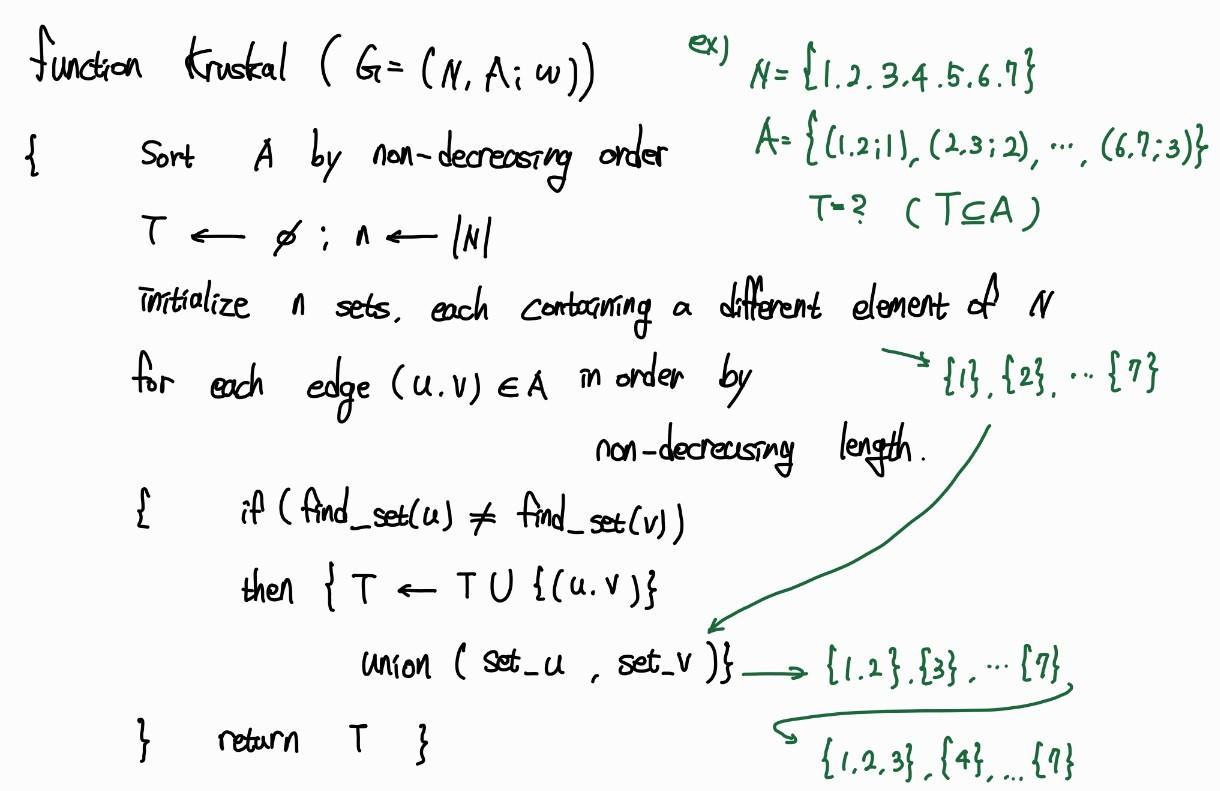 function Kruskal ( G= (N, A; w))
ex)
N= {1.2.3.4.5.6.7}
A= {(1.2;1), (2,3;2), ..., (6.7;3)}
T=? ( T⊆A )
{ Sort A by non-decreasing order
T ← ∅ ; n ← |N|
initialize n sets, each containing a different element of N
→ {1}, {2}, ... {7}
for each edge (u.v) ∈ A in order by
non-decreasing length.
{ if ( find_set(u) ≠ find_set(v))
then { T ← T ∪ {(u.v)}
union ( set_u , set_v )} → {1.2}.{3}, ... {7},
} return T }
{1,2,3}, {4}, ... {7}